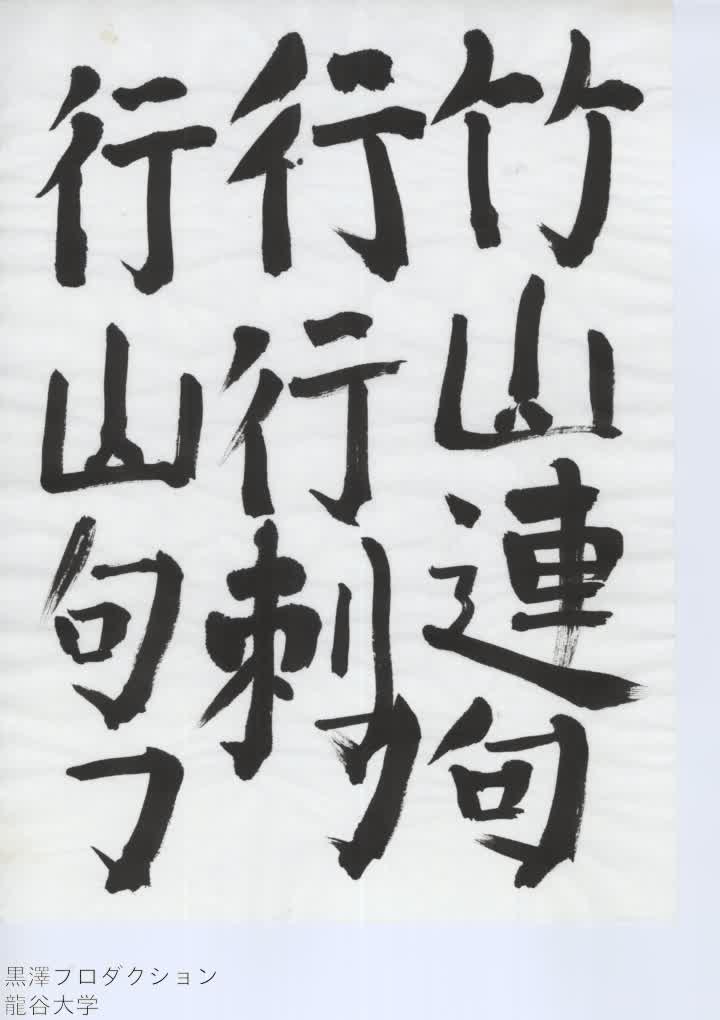 竹山連句
行行刺
行山句
黒澤フロダクション
龍谷大学